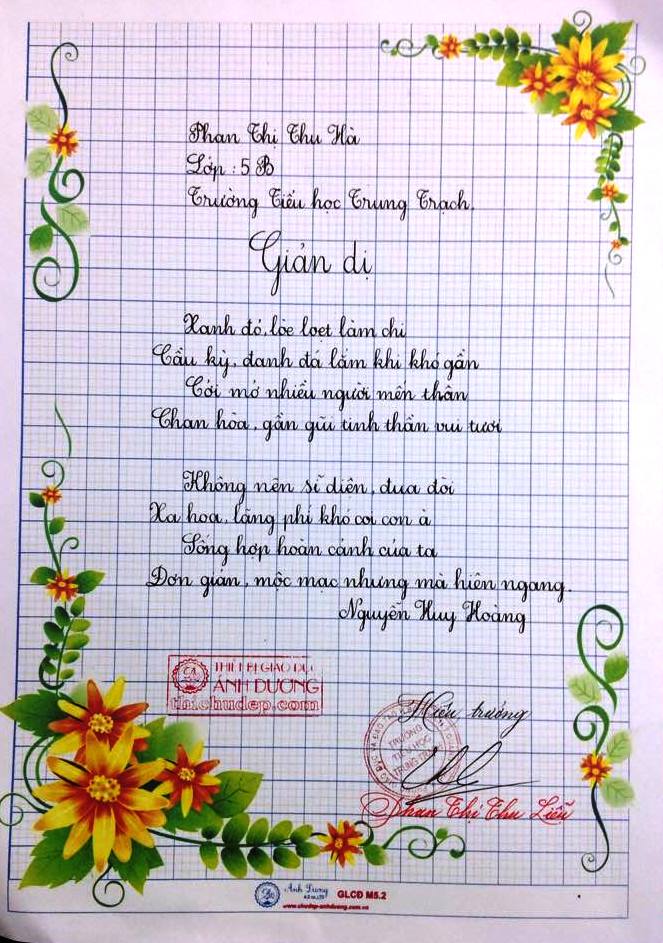 Phan Thị Thu Hà
Lớp : 5 B
Trường Tiểu học Trung Trạch.
Giản dị
Xanh đỏ, lòe loẹt làm chi
Cầu kỳ, đanh đá lắm khi khó gần
Cởi mở nhiều người mến thân
Chan hòa, gần gũi tinh thần vui tươi
Không nên sĩ diện, đua đòi
Xa hoa, lãng phí khó coi con à
Sống hợp hoàn cảnh của ta
Đơn giản, mộc mạc nhưng mà hiên ngang.
Nguyễn Huy Hoàng
THIẾT BỊ GIÁO DỤC
ÁNH DƯƠNG
thichudep.com
Hiệu trưởng
TRƯỜNG
TIỂU HỌC
TRUNG TRẠCH
Phan Thị Thu Liễu
Ánh Dương
GLCĐ M5.2
www.chudep-anhduong.com.vn